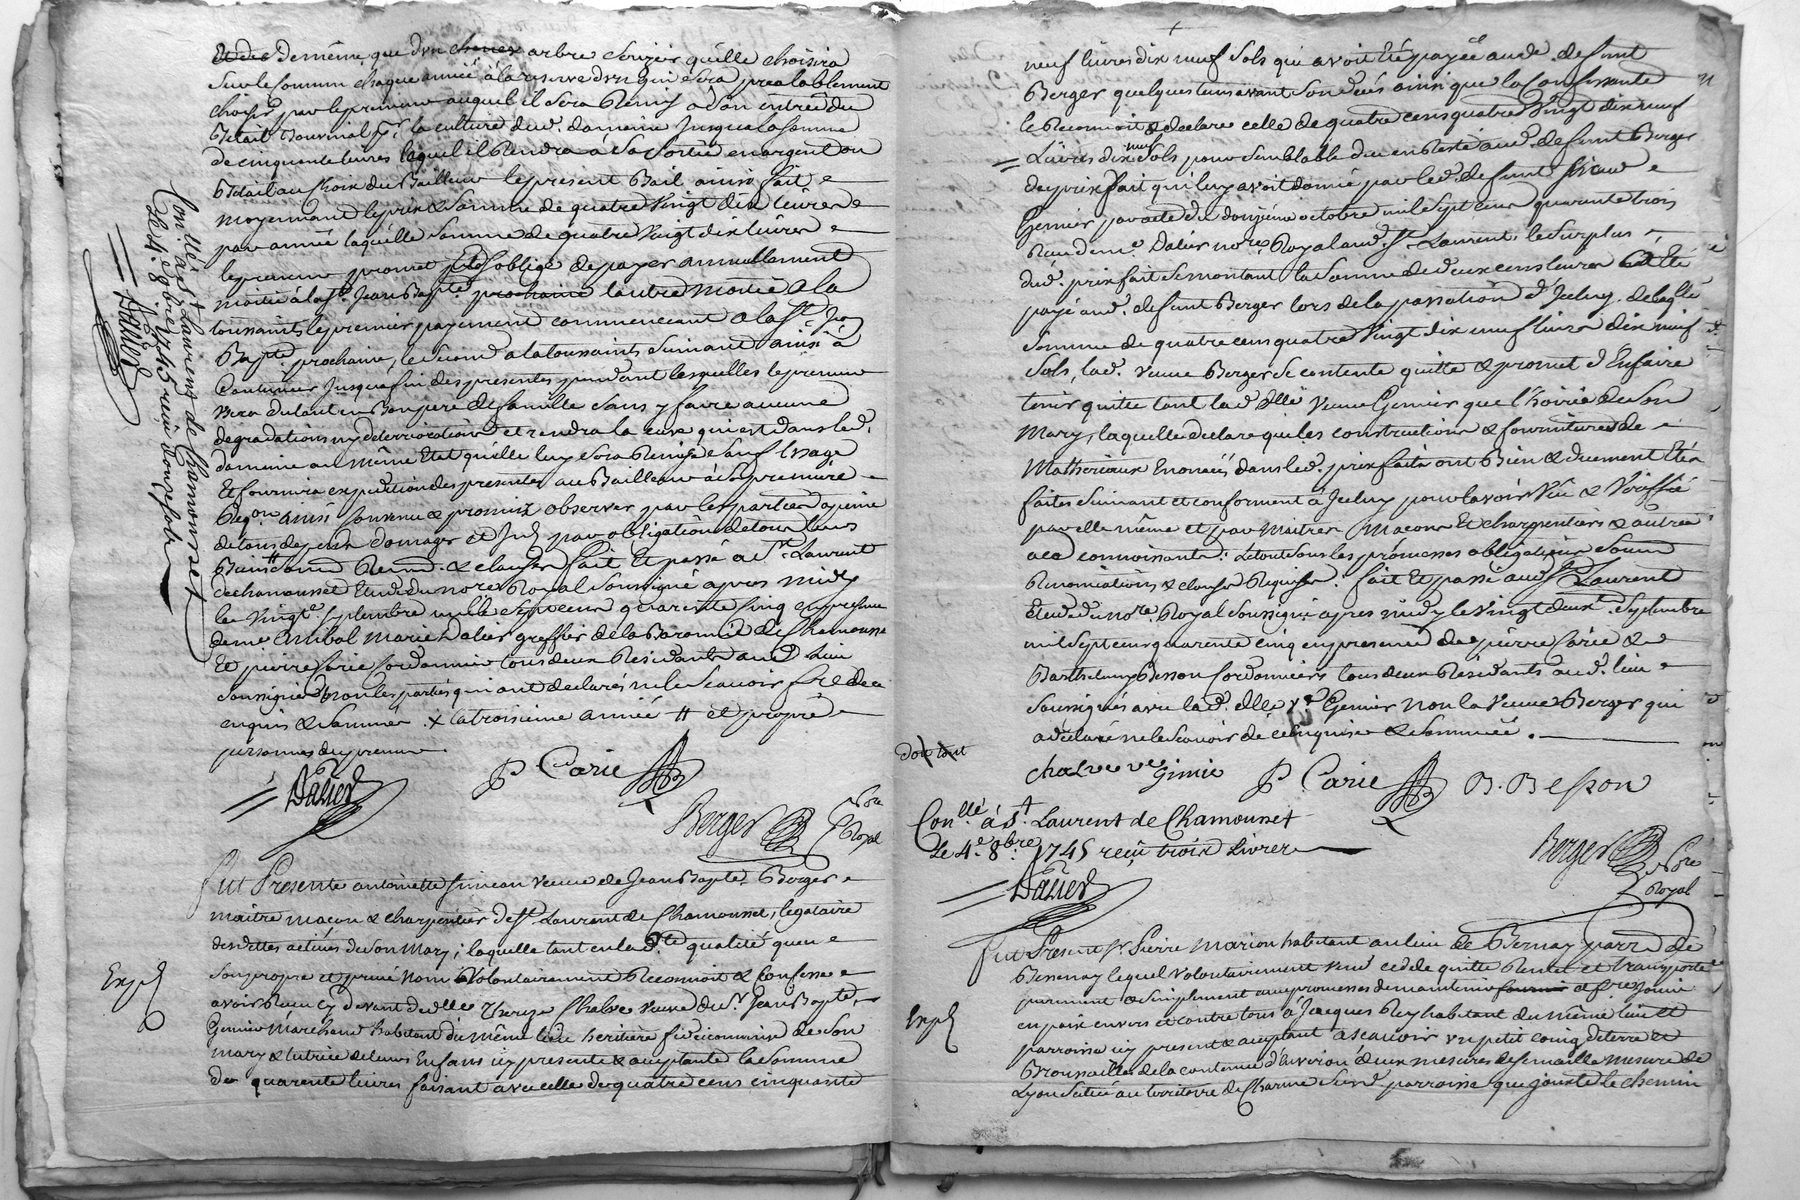 demême que d'un arbre cerizier qu'elle choisira
sur le commun chaque année à la reserve d'un qui sera prealablement
choisy par le preneur auquel il sera Remis à son entrée du
Betail Bouvinal pr. la culture dud. domaine jusqua la somme
de cinquante livres lequel il Rendra à sa sortie en argent ou
Betail au choix du Bailleur le present Bail ainsi fait
moyennant le prix & somme de quatre vingt dix livres
par année laquelle somme de quatre vingt dix livres
le preneur promet et s'oblige de payer annuellement
moitié à la st. Jean Bapte. prochaine l'autre moitié à la
toussaints le premier payement commenceant a la st. Jean
Bapte. prochaine, le second a la toussaints suivant ainsi à
continuer jusqua fin des presentes pendant lesquelles le preneur
vivra dulant en Bon pere de famille sans y faire aucune
degradations ny deterriorations et rendra la cuve qui est dans led.
domaine au même Etat qu'elle luy sera Remise sauf l'usage
Et fournira expedition des presentes au Bailleur à sa premiere
Reqon. ainsi convenu & promis observer par les parties à peine
de tous depens domages et par obligation de tous leurs
Biens Renon. & clauses fait Et passé a St. Laurent
de chamousset Etude du nore Royal soussigné apres midy
le vingte. septembre mille sept cens quarente cinq en presence
de me. Annibal Marie Dalier greffier de la Baronnie de Chamousset
Et pierre Carie cordonnier tous deux Residants aud. lieu
soussignés non les parties qui ont declarés ne le scavoir fre de ce
enquis & sommés . x la troisieme année # et propre
personne du preneur
Dalier P Carie
Berger Nore
Royal
Conllé. à St Laurent de Chamousset
Le 4e. 8bre 1745 reçu douze sols
Dalier
Fut Presente antoinette simeon veuve de Jean Bapte. Berger
maitre maçon & charpentier de St. Laurent de Chamousset, legataire
des dettes actives de son Mary, laquelle tant en lad. qualité quen
Exped
son propre et privé nom volontairement Reconnoit & confesse
avoir Receu cy devant de dlle. Therese Chalve veuve du sr. Jean Bapte.
Gemier Marchand habitant du même lieu heritiere fideicommise de son
mary & tutrice de leurs Enfans icy presente & acceptante la somme
de quarente livres faisant avec celle de quatre cens cinquante
neuf livres dix neuf sols qui avoit été payée aud. defunt
Berger quelques tems avant son decés ainsi que la confessante
le Reconnoit & declare celle de quatre cens quatre vingt dix neuf
Livres dix neuf sols pour semblable due en Reste aud. defunt Berger
du prix fait qui luy avoit donné par led. defunt sieur
Gemier par acte du douzieme octobre mil sept cens quarente trois
Reçu de me. Dalier nore Royal aud. St. Laurent, le surplus
dud. prix fait se montant la somme de deux cens livres été
payé aud. defunt Berger lors de la passation d'Iceluy. de laqlle
somme de quatre cens quatre vingt dix neuf livres dix neuf
sols, lad. veuve Berger se contente quitte & promet d'En faire
tenir quitte tant lad. dlle veuve Gemier que l'hoirie de son
Mary, laquelle declare que les constructions & fournitures de
Matheriaux Enoncés dans led. prix fait ont Bien & duement été
faites suivant et conforment à Iceluy pour l'avoir vûe & verifiée
par elle même et par Maitres Maçons Et charpentiers & autres
a ce connoissants: le tout sous les promesses obligations soumis
Renonciations & clauses Requises. fait Et passé aud. St Laurent
Etude du nore. Royal soussigné apres midy le vingt deuxe. septembre
mil sept cens quarente cinq en presence de pierre Carie &
Barthelemy Besson cordonniers tous deux Residants aud. lieu
soussignés avec lad. dlle ve. Gemier non la veuve Berger qui
a declaré ne le scavoir de ce enquise & sommée .
chalve ve gimie P Carie B. Besson
Conllé. à St. Laurent de Chamousset
Le 4e. 8bre. 1745 reçu trois Livres
Dalier
Berger Nore
Royal
Fut Present sr Pierre Marion habitant au lieu de Bernay parre de
Bessenay lequel volontairement vend cedde quitte Remet et transporte
purement & simplement avec promesses de maintenir
Exped
en paix envers et contre tous à Jacques Rey habitant du même lieu et
parroisse icy present & acceptant ascavoir un petit coing de terre et
Broussailles de la contenue d'environ deux mesures de semaille mesure de
Lyon situé au territoire de Charme susd. parroisse que jouxte le chemin